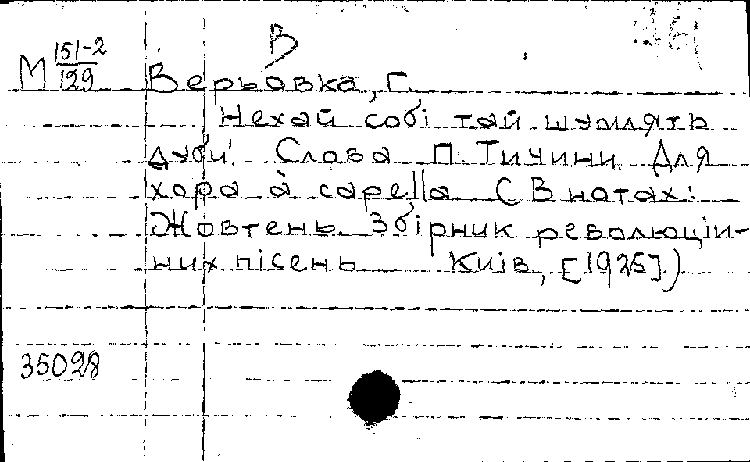 В
М 151-2/129
Верьовка, Г.
Нехай собі тай шумлять
дуби. Слова П. Тичини Для
хора à capella (В нотах:
Жовтень. Збірник революцій-
них пісень Київ, [1925].)
35028